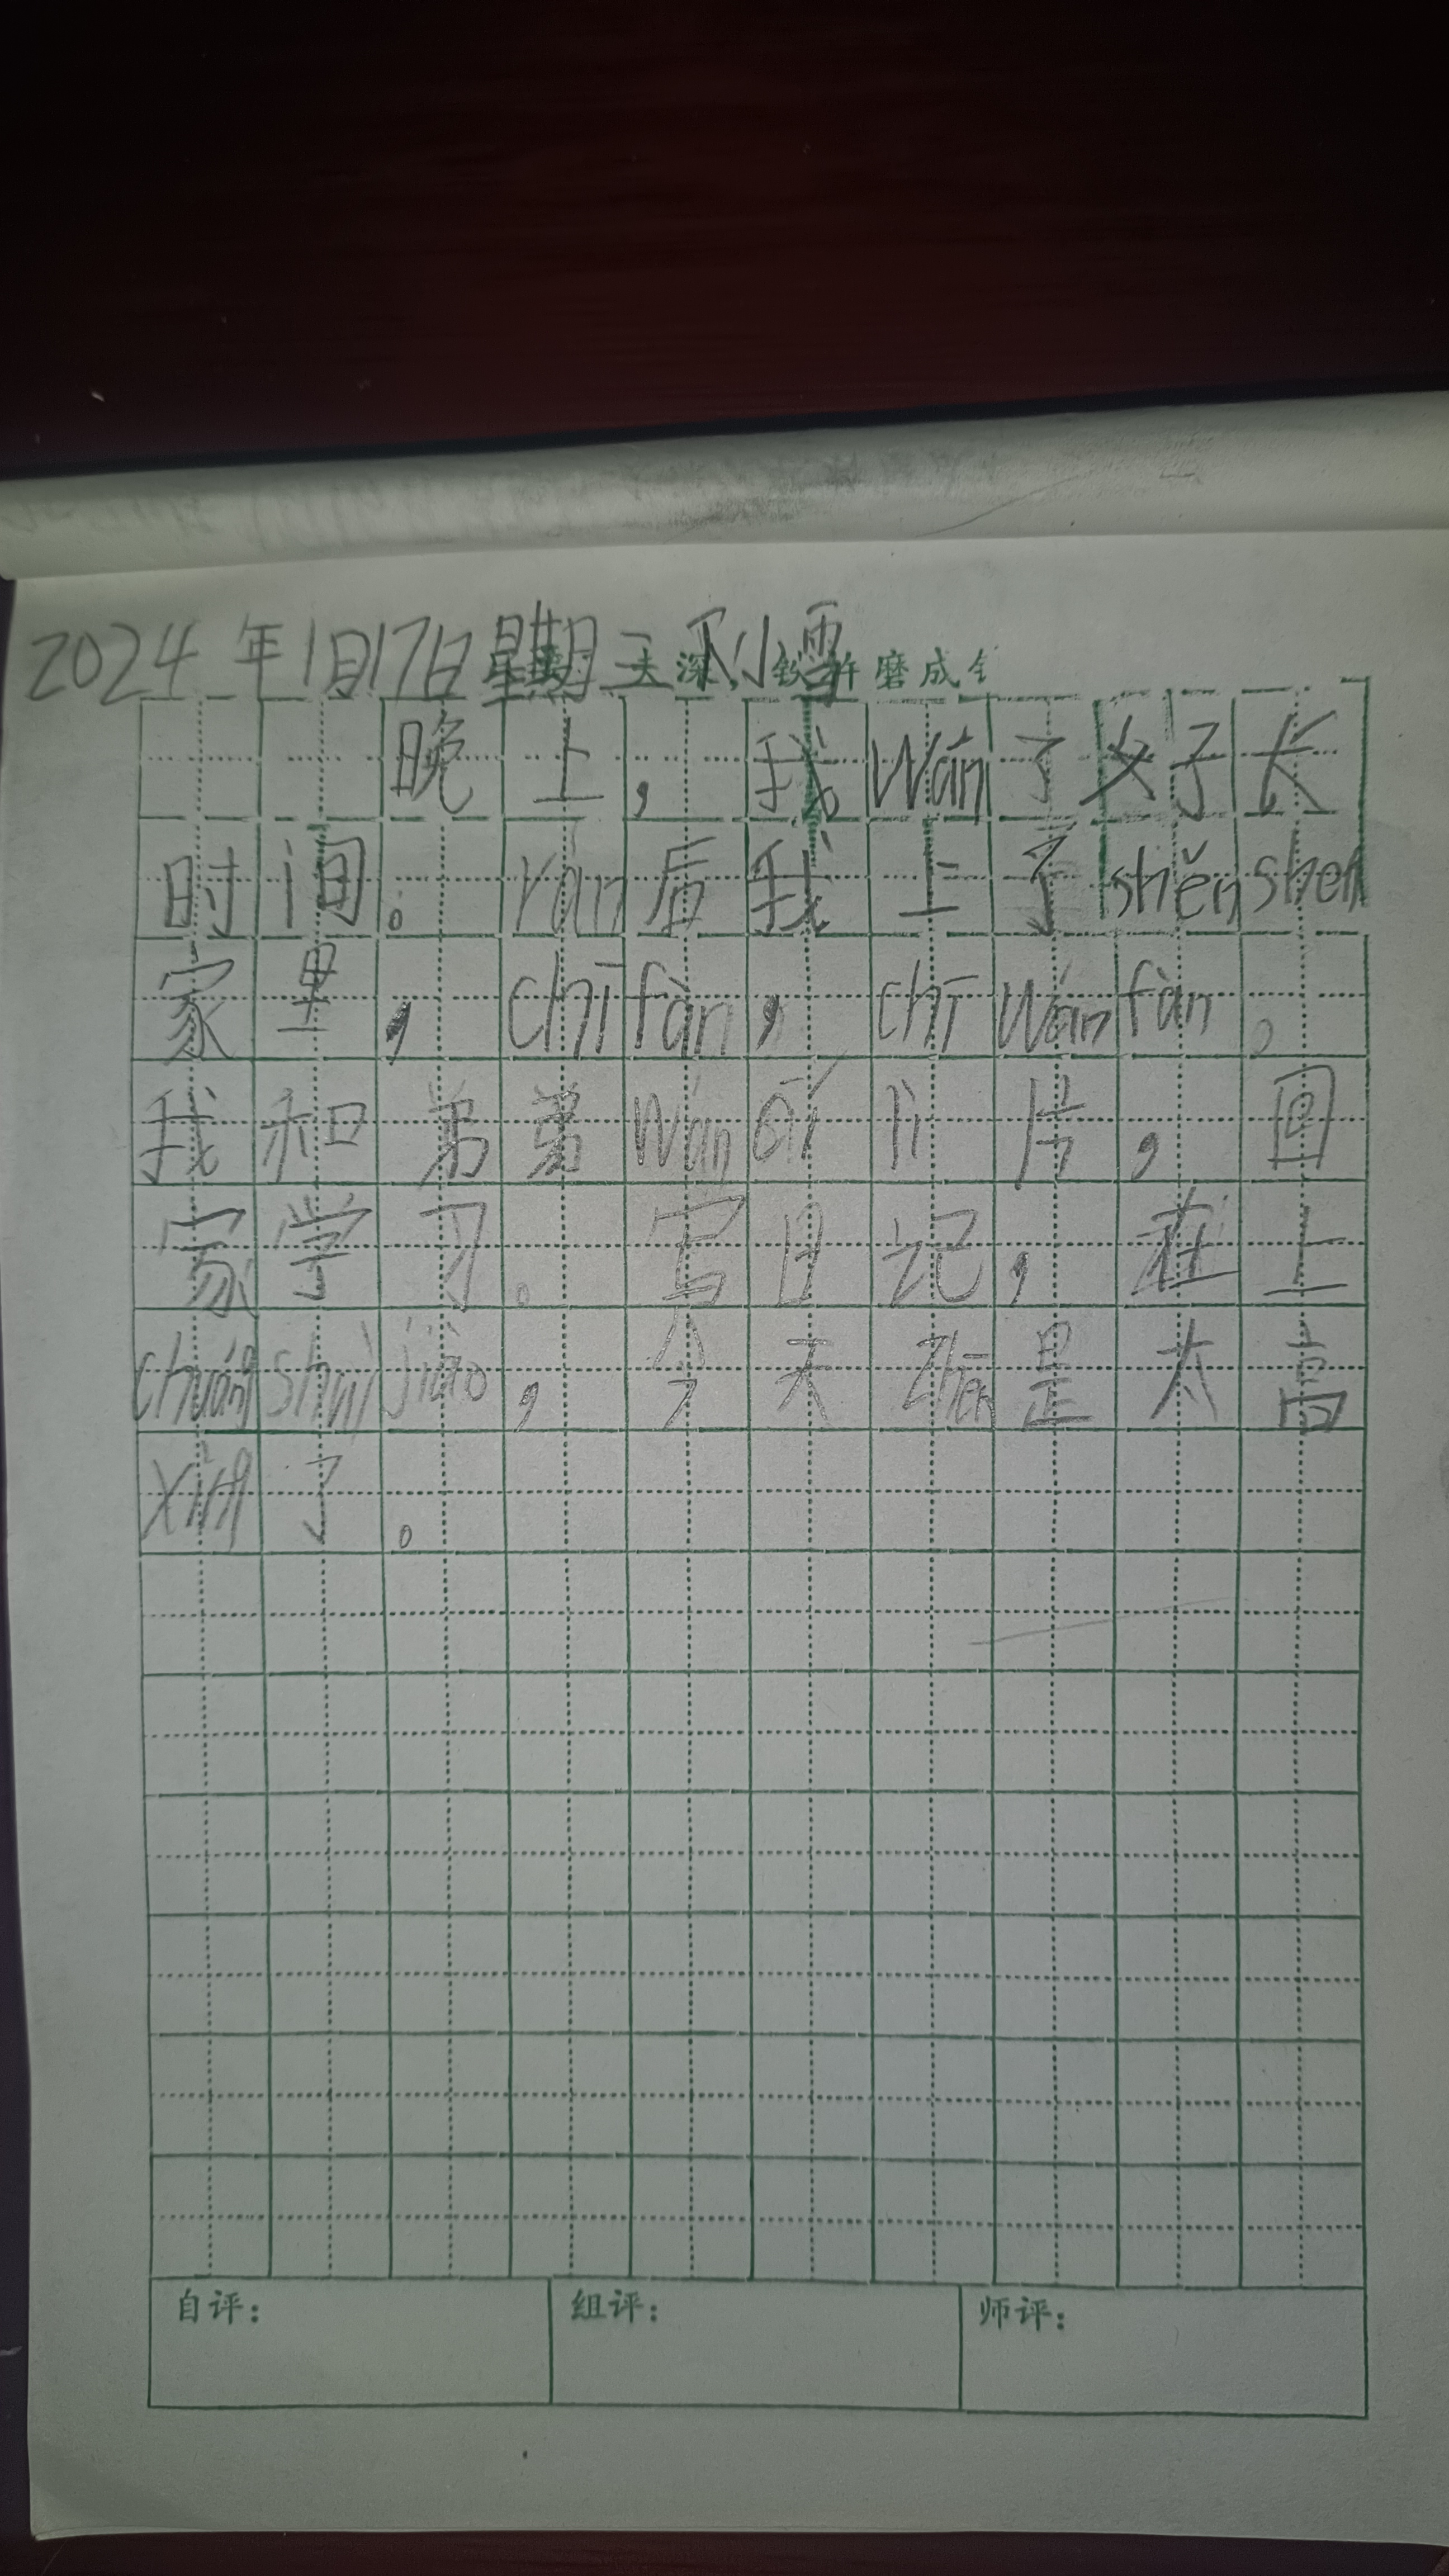 2024年1月17日星期三 下小雪
功夫深,铁杵磨成针
晚上,我wán了好长
时间。rán后我上了shěnshen
家里,chīfàn,chīwánfàn。
我和弟弟wánqílì片,回
家学习。写日记,在上
chuángshuìjiào,今天zhēn是太高
xìng了。
自评: 组评: 师评: